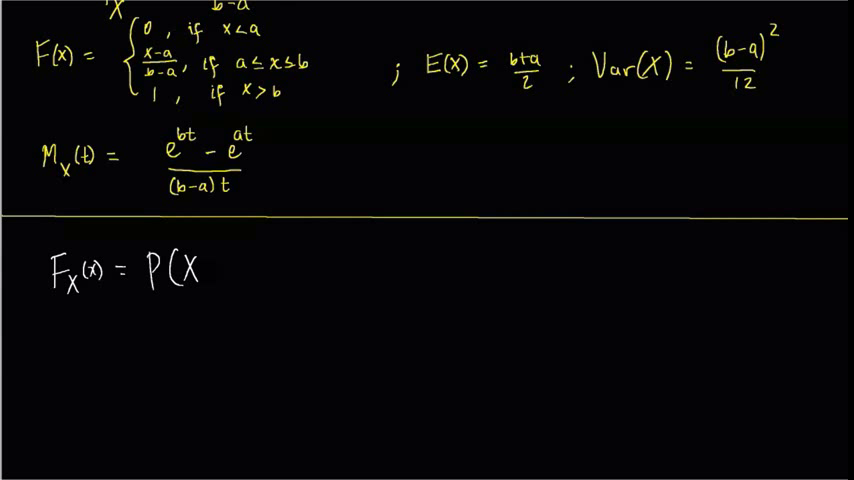 X b-a
F(x) = { 0 , if x<a
x-a/b-a , if a≤x≤b
1 , if x>b
; E(X) = b+a/2 ; Var(X) = (b-a)²/12
M_X(t) = e^bt - e^at / (b-a)t
F_X(x) = P(X